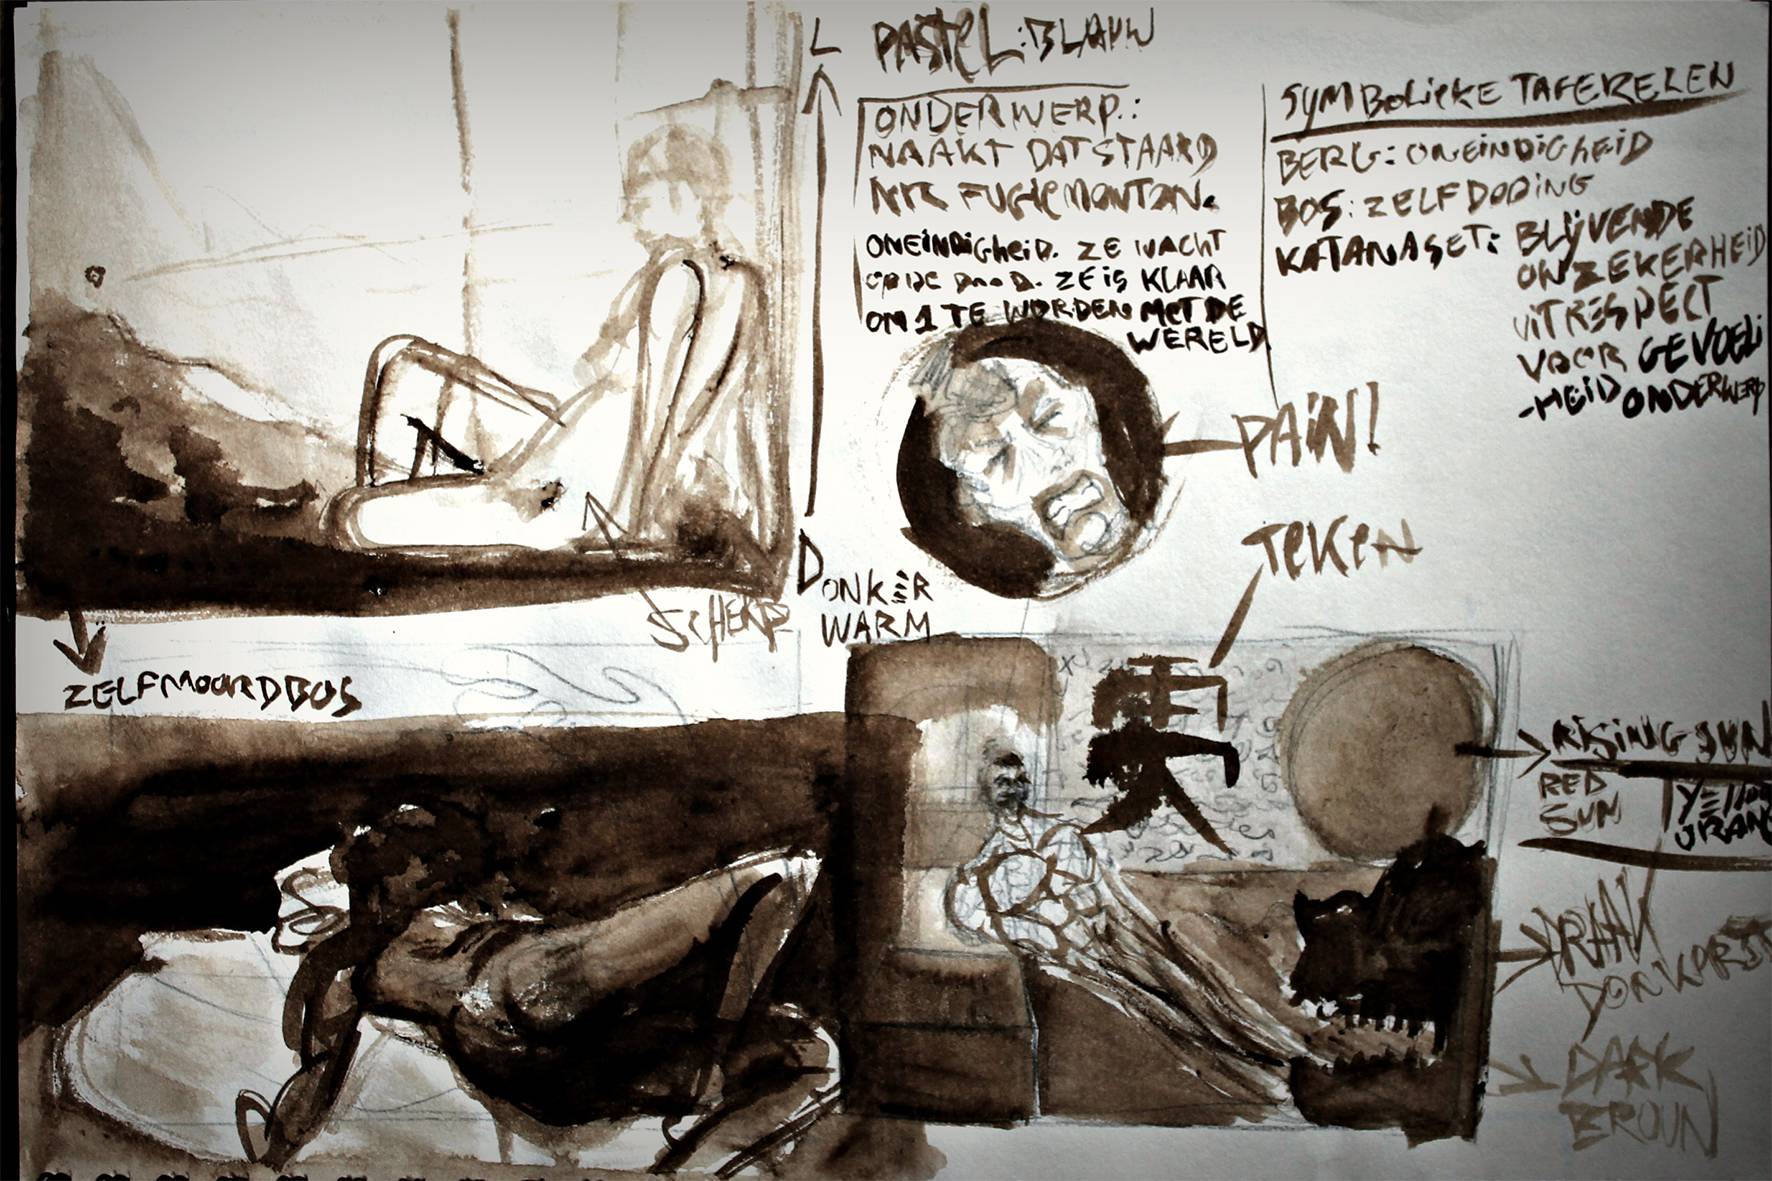 L
PASTEL: BLAUW
ONDERWERP:
NAAKT DAT STAARD
NR FUGIEMONTAN.
ONEINDIGHEID. ZE WACHT
OP DE DOOD. ZE IS KLAAR
OM 1 TE WORDEN MET DE
WERELD
SYMBOLIEKE TAFERELEN
BERG: ONEINDIGHEID
BOS: ZELFDODING
KATANASET: BLIJVENDE
ONZEKERHEID
UIT RESPECT
VOOR GEVOELI
-HEID ONDERWERP
PAIN!
TEKEN
DONKER
WARM
SCHERP
ZELFMOORDBOS
RISING SUN
RED
SUN
YELLOW
ORANG
DRAAK
DARK
BROUN